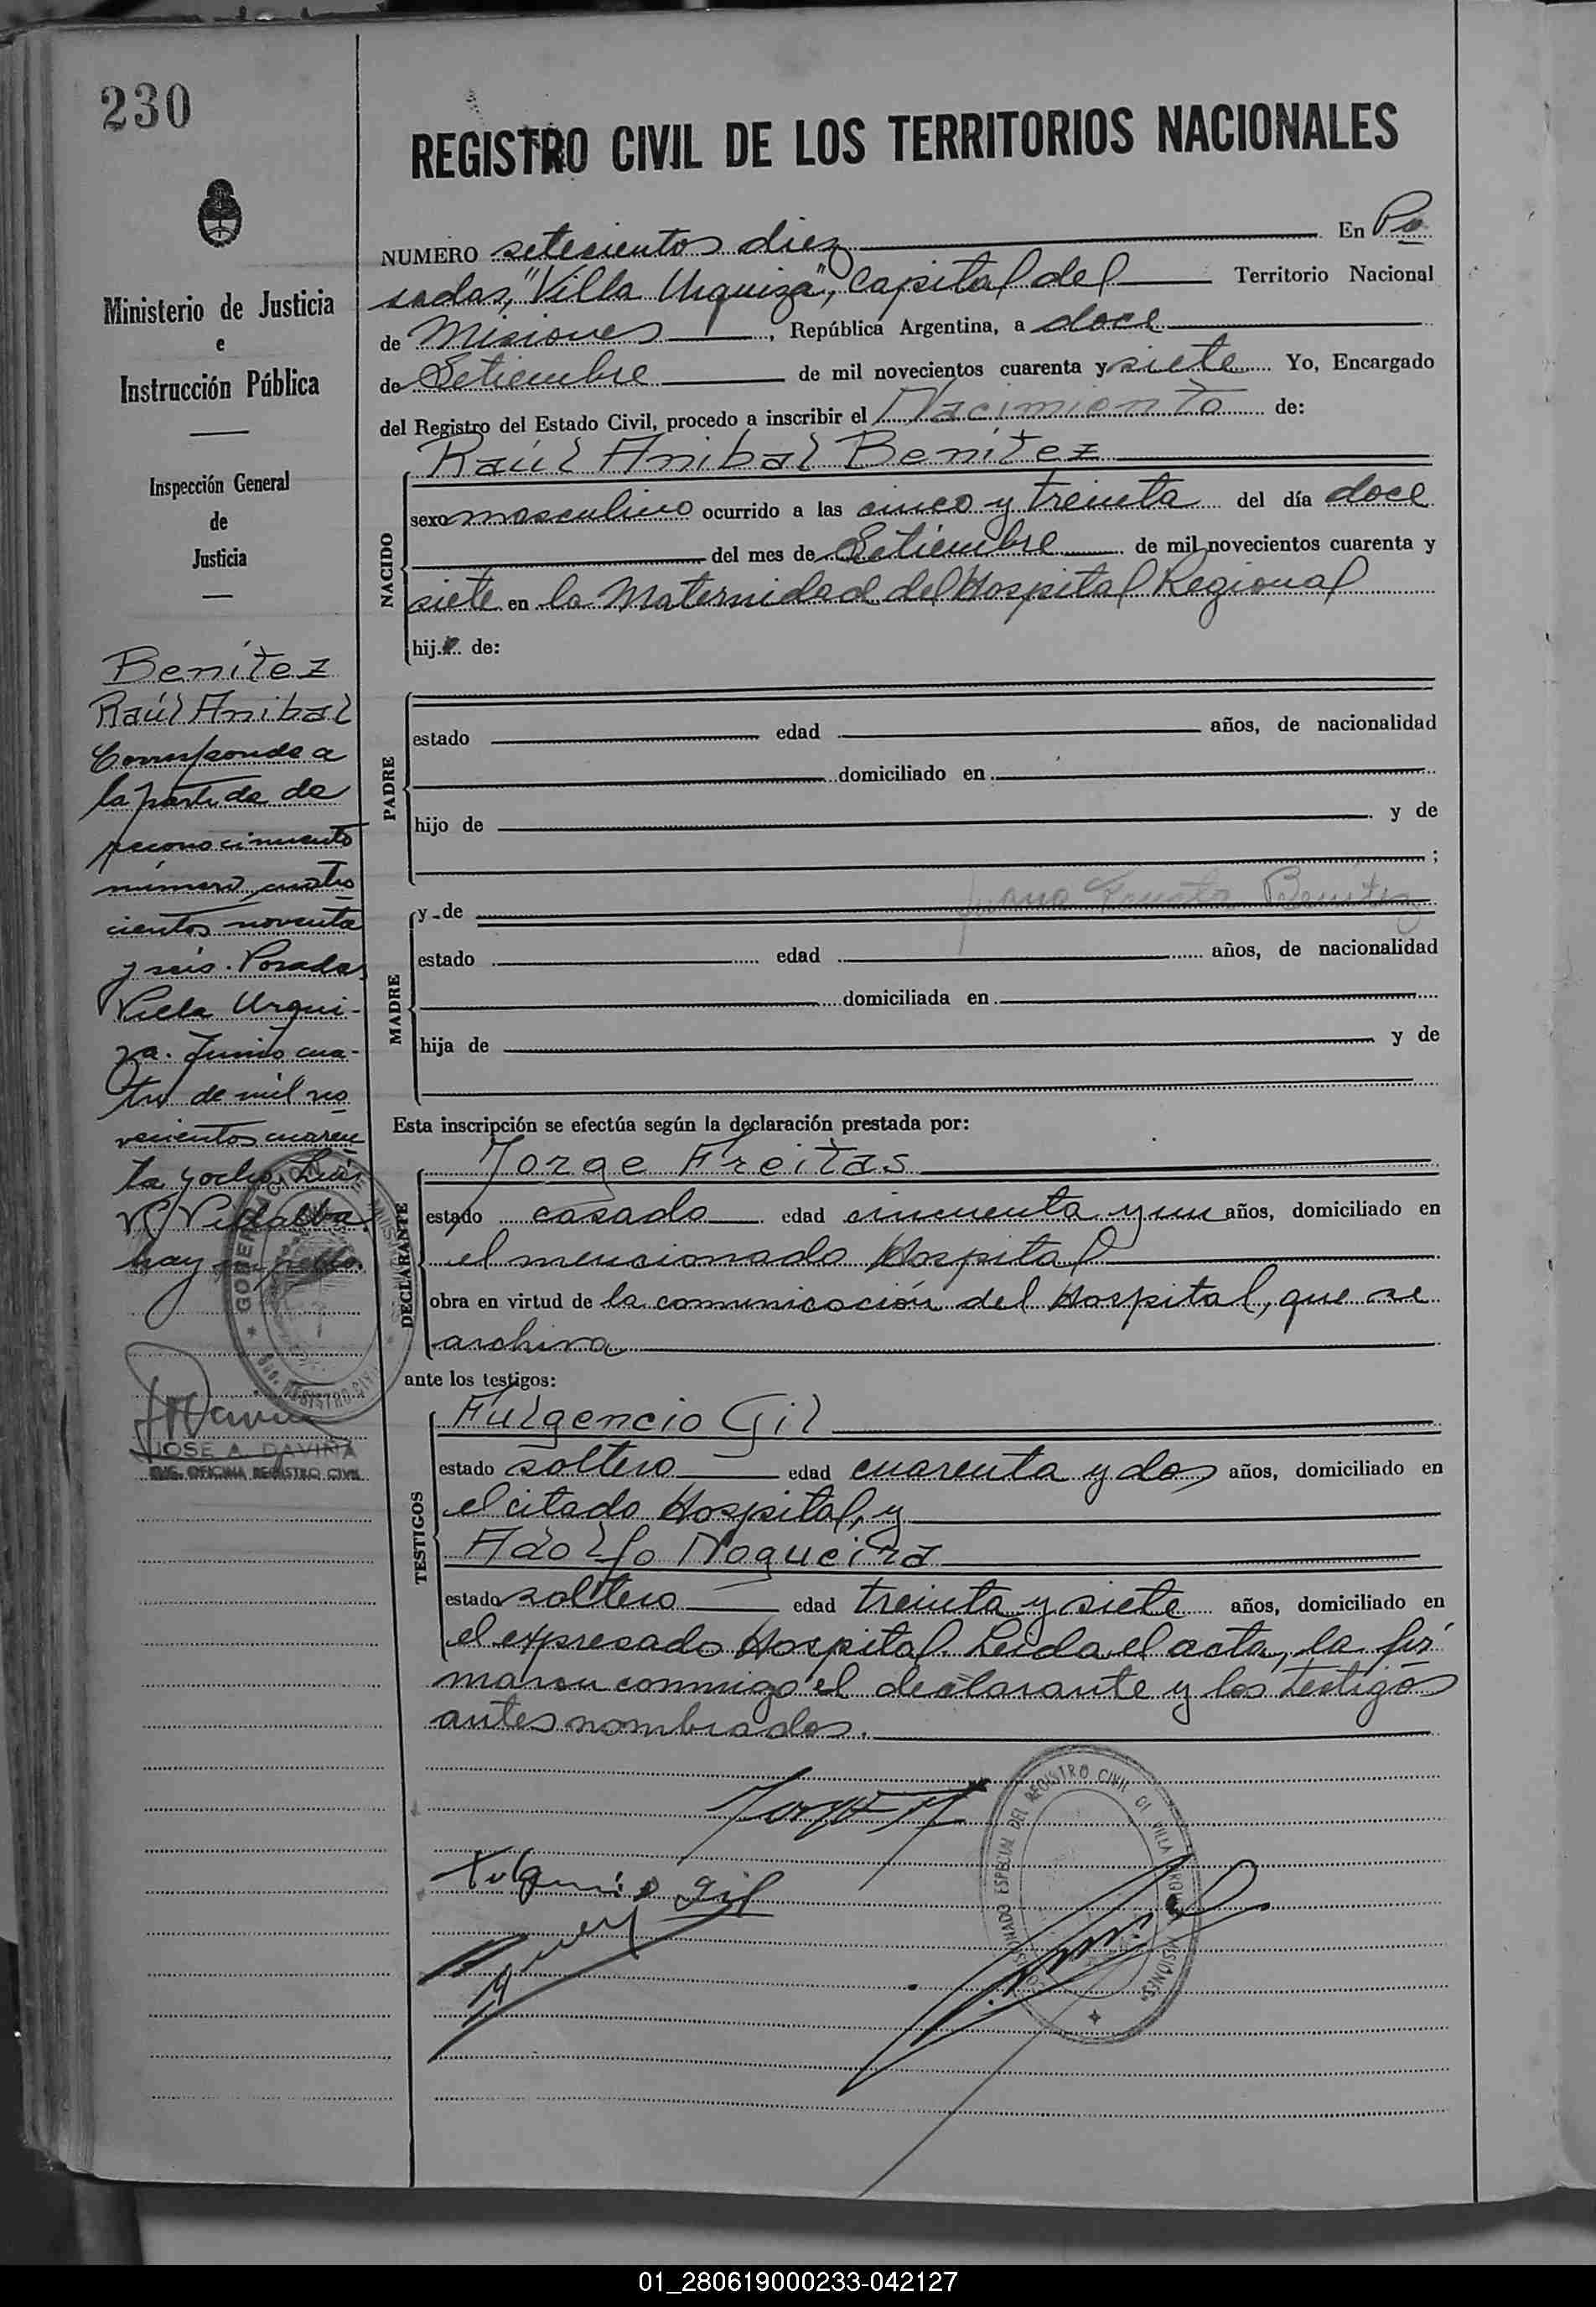 230
REGISTRO CIVIL DE LOS TERRITORIOS NACIONALES
Ministerio de Justicia
e
Instrucción Pública
Inspección General
de
Justicia
Benítez
Raúl Anibal
Corresponde a
la partida de
reconocimiento
número cuatro
cientos noventa
y seis. Posadas
Villa Urqui-
za. Junio cua-
tro de mil no
vecientos cuaren
ta y ocho. Luis
V. Vidalba
hay un sello.
JOSE A. DAVIÑA
ENC. OFICINA REGISTRO CIVIL
NUMERO setecientos diez En Po
sadas, "Villa Urquiza", Capital del Territorio Nacional
de Misiones, República Argentina, a doce
de Setiembre de mil novecientos cuarenta y siete Yo, Encargado
del Registro del Estado Civil, procedo a inscribir el Nacimiento de:
NACIDO
Raúl Anibal Benítez
sexo masculino ocurrido a las cinco y treinta del día doce
del mes de Setiembre de mil novecientos cuarenta y
siete en la Maternidad del Hospital Regional
hij.. de:
PADRE
estado edad años, de nacionalidad
domiciliado en
hijo de y de
;
MADRE
y de Benítez
estado edad años, de nacionalidad
domiciliada en
hija de y de
Esta inscripción se efectúa según la declaración prestada por:
DECLARANTE
Jorge Freitas
estado casado edad cincuenta y un años, domiciliado en
el mencionado Hospital
obra en virtud de la comunicación del Hospital, que se
archiva
ante los testigos:
TESTIGOS
Fulgencio Gil
estado soltero edad cuarenta y dos años, domiciliado en
el citado Hospital, y
Adolfo Nogueira
estado soltero edad treinta y siete años, domiciliado en
el expresado Hospital. Leida el acta, la fir
maron conmigo el declarante y los testigos
antes nombrados.
REGISTRO CIVIL
Fulgencio Gil
01_280619000233-042127